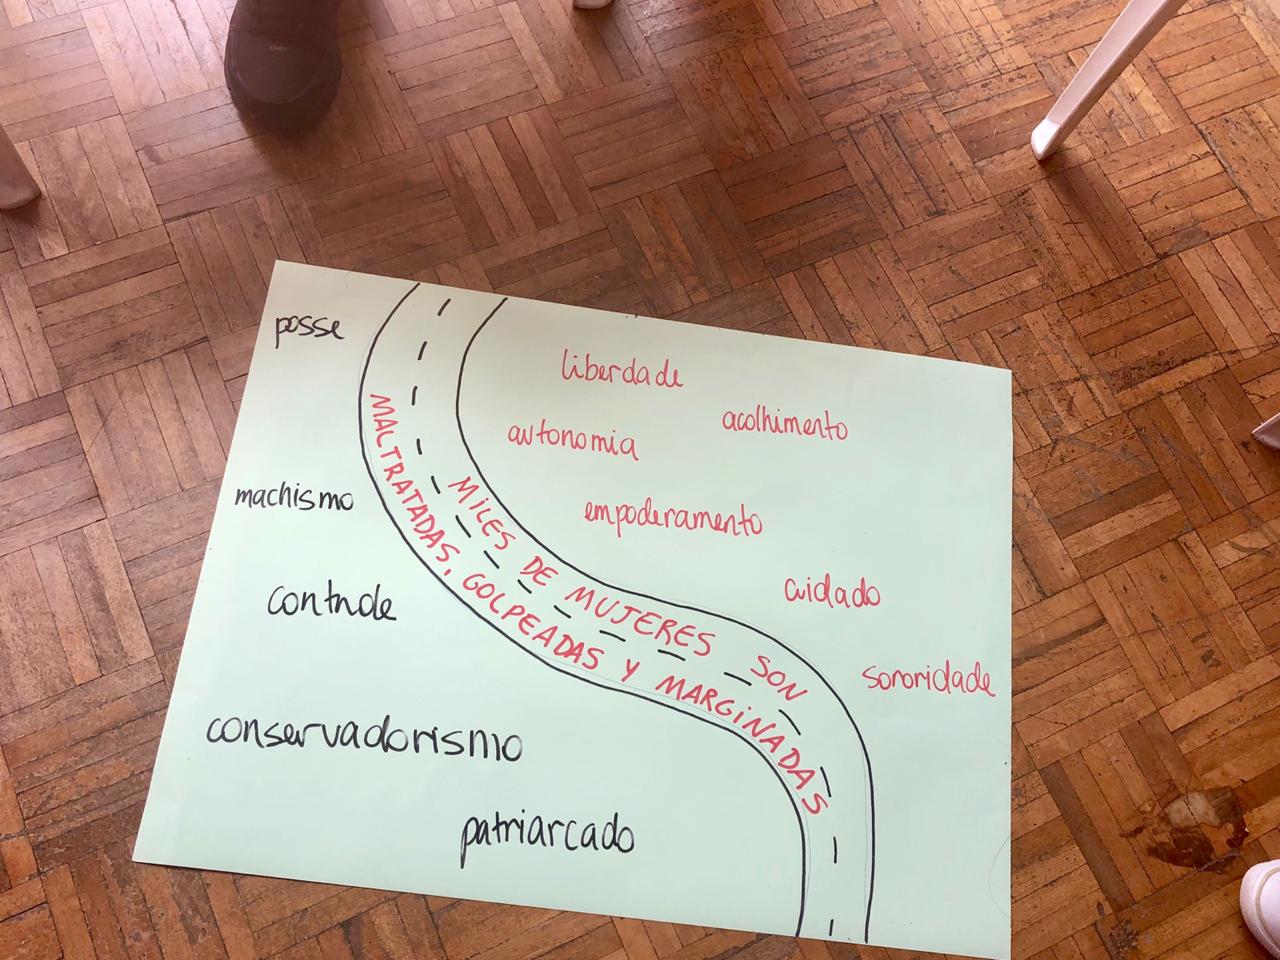 posse
machismo
controle
conservadorismo
patriarcado
MILES DE MUJERES SON
MALTRATADAS, GOLPEADAS Y MARGINADAS
liberdade
acolhimento
autonomia
empoderamento
cuidado
sororidade